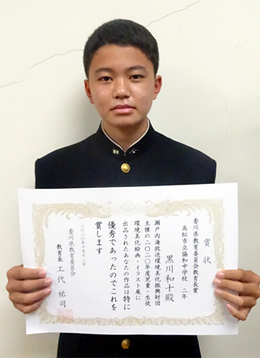 賞状
香川県教育委員会教育長賞
高松市立協和中学校 二年
黒川和士殿
瀬戸内海放送環境美化振興財団
主催の二〇二〇年度児童・生徒
環境美化絵画・イラスト展に
出品されたあなたの作品は特に
優秀であったのでこれを
賞します
香川県教育委員会
教育長 工代 祐司